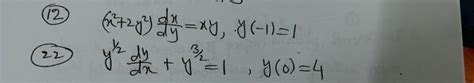 (12) (x²+2y²) dx/dy = xy, y(-1)=1
(22) y^{1/2} dy/dx + y^{3/2} = 1, y(0)=4